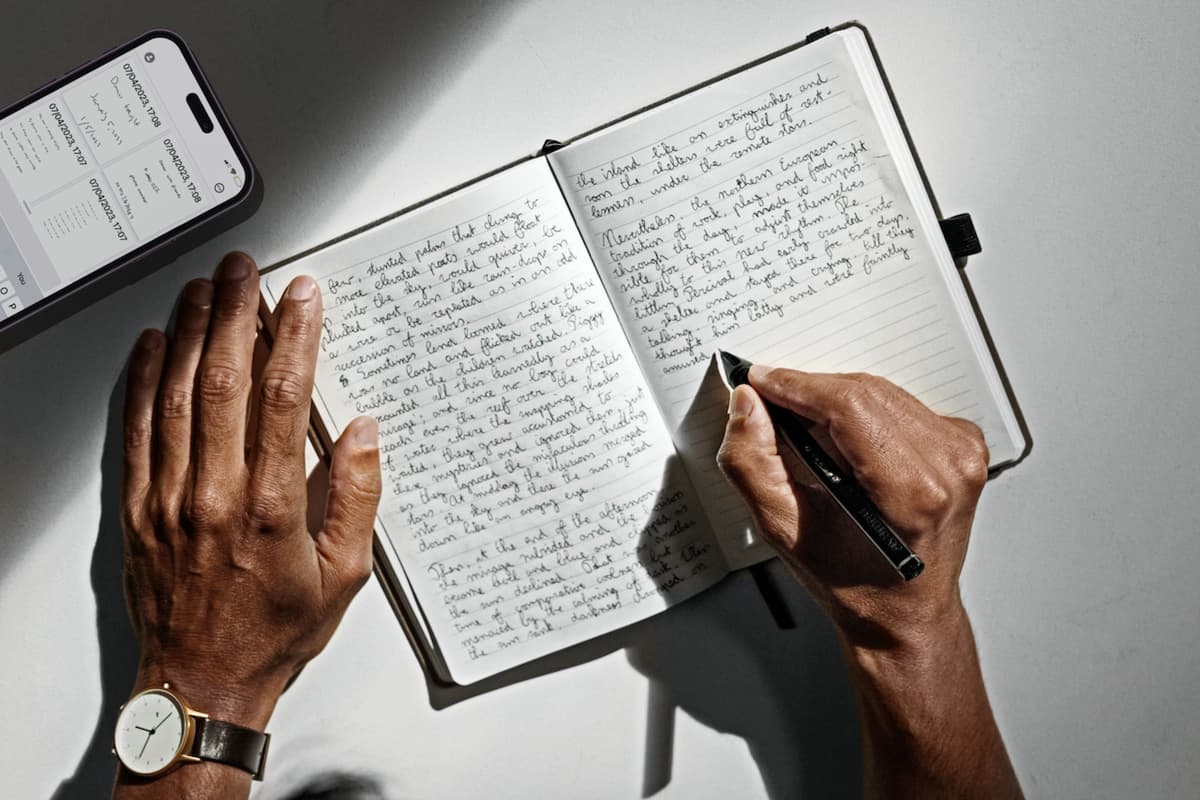 07/04/2023, 17:08
07/04/2023, 17:07
07/04/2023, 17:08
07/04/2023, 17:07
You
O
P
few, stunted palms that clung to
more elevated parts would float
into the sky, would quiver, be
plucked apart, run like rain-drops on
a wire or be repeated as in an odd
succession of mirrors.
Sometimes land loomed where there
was no land and flicked out like a
bubble as the children watched. Piggy
discounted all this learnedly as a
mirage'; and since no boy could
reach even the reef over the stretch
of water where the snapping sharks
waited, they grew accustomed to
these mysteries and ignored them, just
as they ignored the miraculous, throbbing
stars. At midday the illusions merged
into the sky and there the sun gazed
down like an angry eye
Then, at the end of the afternoon
the mirage subsided and the horizon
became level and blue and clipped as
the sun declined. That was another
time of comparative coolness but
menaced by the calming of dark. When
the sun sank, darkness dropped on
the island like an extinguisher and
soon the shelters were full of rest-
lessness, under the remote stars.
Nevertheless, the northern European
tradition of work, play, and food right
through the day, made it impos-
sible for them to adjust themselves
wholly to this new rhythm. The
littlun Percival had early crawled into
a shelter and stayed there for two days,
talking, singing, and crying, till they
thought him batty and were faintly
amused.